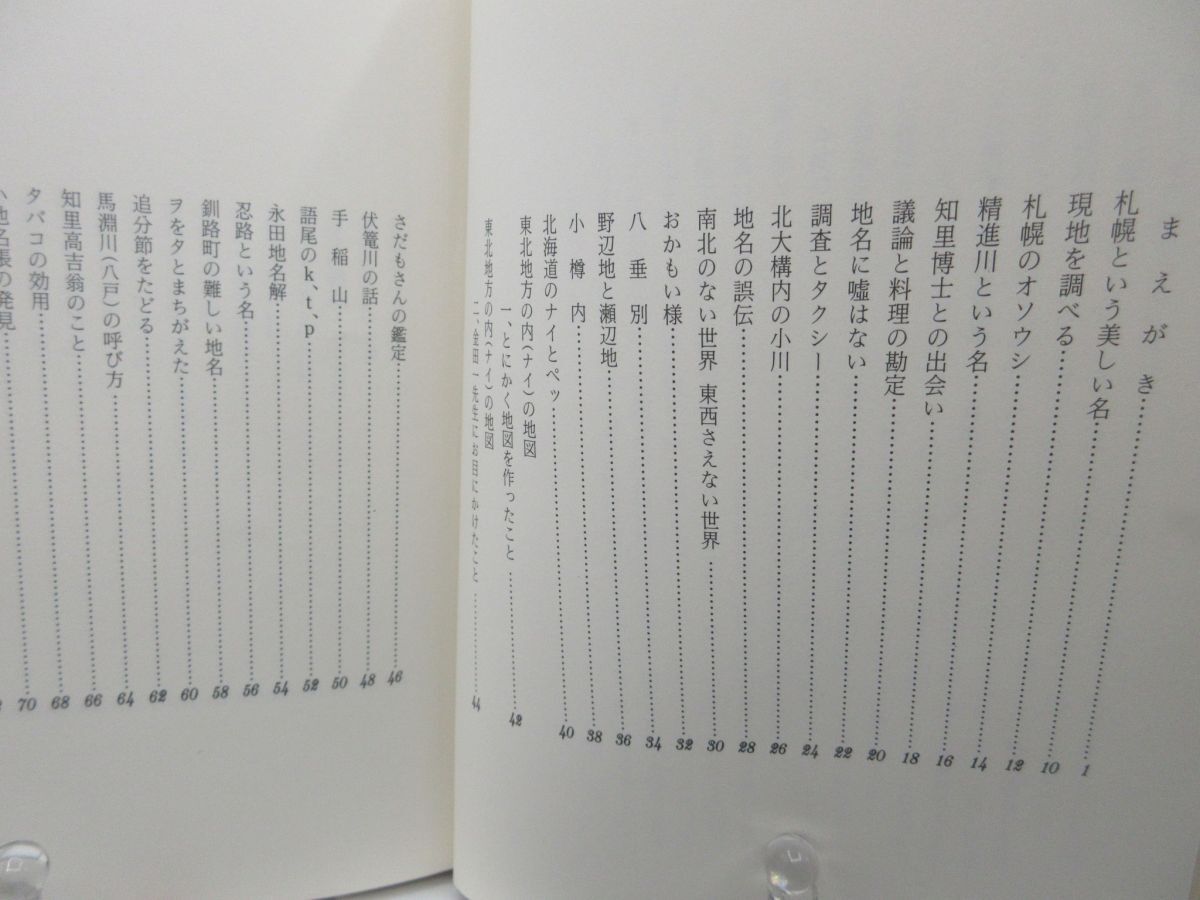 まえがき……1
札幌という美しい名……10
現地を調べる……12
札幌のオソウシ……14
精進川という名……16
知里博士との出会い……18
議論と料理の勘定……20
地名に嘘はない……22
調査とタクシー……24
北大構内の小川……26
地名の誤伝……28
南北のない世界 東西さえない世界……30
おかもい様……32
八垂別……34
野辺地と瀬辺地……36
小樽内……38
北海道のナイとペッ……40
東北地方の内(ナイ)の地図
一、とにかく地図を作ったこと……42
東北地方の内(ナイ)の地図
二、金田一先生にお目にかけたこと……44
さだもさんの鑑定……46
伏篭川の話……48
手稲山……50
語尾のk、t、p……52
永田地名解……54
忍路という名……56
釧路町の難しい地名……58
ヲをタとまちがえた……60
追分節をたどる……62
馬淵川(八戸)の呼び方……64
知里高吉翁のこと……66
タバコの効用……68
地名帳の発見……70